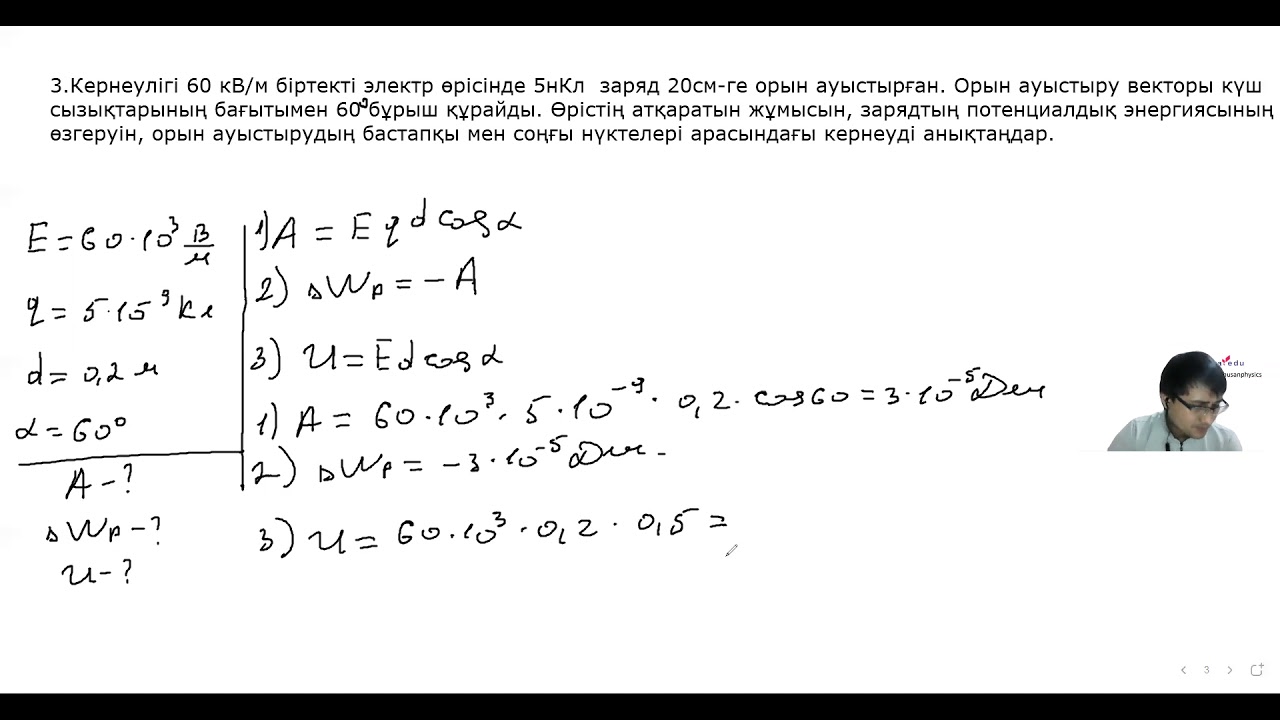 3.Кернеулігі 60 кВ/м біртекті электр өрісінде 5нКл заряд 20см-ге орын ауыстырған. Орын ауыстыру векторы күш
сызықтарының бағытымен 60⁰ бұрыш құрайды. Өрістің атқаратын жұмысын, зарядтың потенциалдық энергиясының
өзгеруін, орын ауыстырудың бастапқы мен соңғы нүктелері арасындағы кернеуді анықтаңдар.
E = 60·10³ В/м
q = 5·10⁻⁹ Кл
d = 0,2 м
α = 60⁰
A - ?
ΔWp - ?
U - ?
1) A = E q d cos α
2) ΔWp = - A
3) U = E d cos α
1) A = 60·10³ · 5·10⁻⁹ · 0,2 · cos60 = 3·10⁻⁵ Дж
2) ΔWp = -3·10⁻⁵ Дж
3) U = 60·10³ · 0,2 · 0,5 =
edu
usanphysics
3